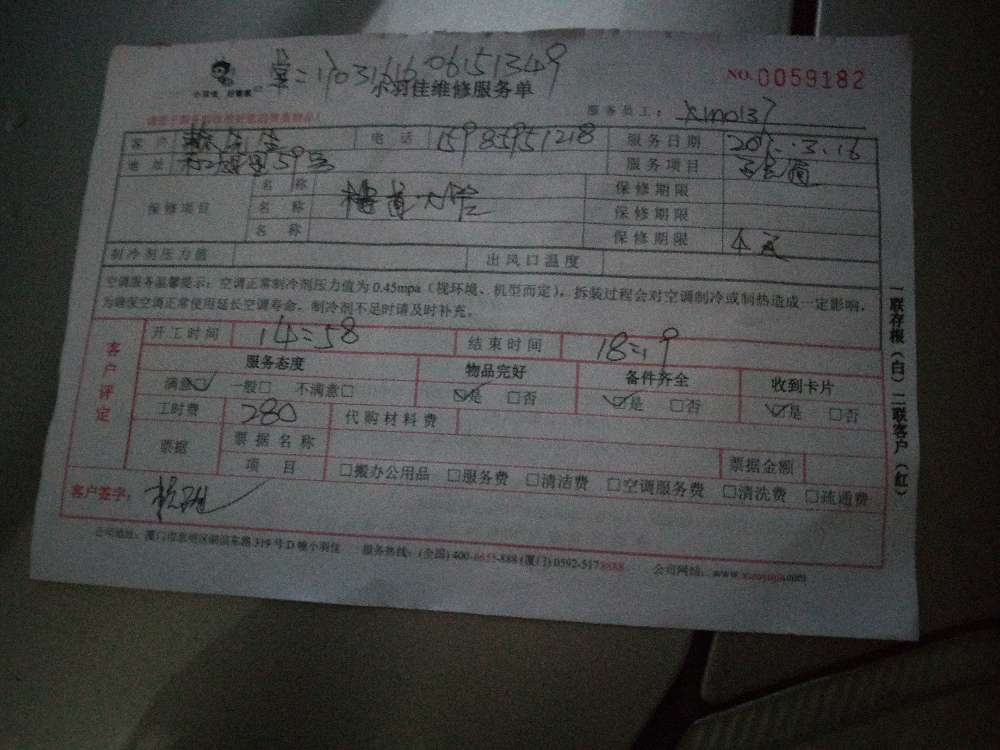 小羽佳 好管家
1703161606151349
小羽佳维修服务单
NO.0059182
服务员工: xm0137
客户 电话 15985951218 服务日期 3.16
地址 59号 服务项目
保修项目 名称 保修期限
名称 保修期限
名称 保修期限
制冷剂压力值 出风口温度
空调服务温馨提示:空调正常制冷剂压力值为0.45mpa(视环境、机型而定),拆装过程会对空调制冷或制热造成一定影响,
为确保空调正常使用延长空调寿命,制冷剂不足时请及时补充。
客户评定
开工时间 14:58 结束时间 18:19
服务态度 物品完好 备件齐全 收到卡片
满意☑ 一般□ 不满意□ ☑是 □否 ☑是 □否 ☑是 □否
工时费 280 代购材料费
票据 票据名称 票据金额
项目 □搬办公用品 □服务费 □清洁费 □空调服务费 □清洗费 □疏通费
客户签字:
公司地址:厦门市思明区 319号D幢小羽佳 服务热线:(全国)400-6655-888(厦门)0592-5178888 公司网站:www.xiaoyujia.com
一联存根(白)二联客户(红)